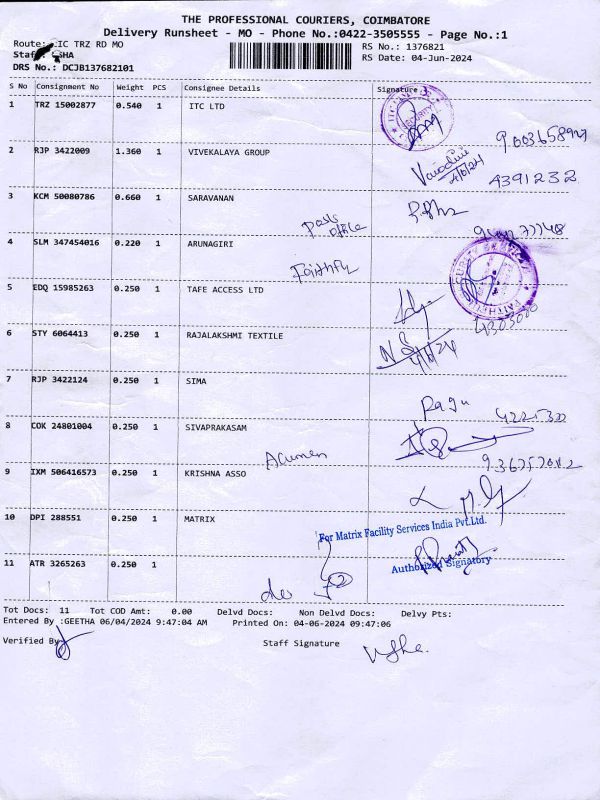 THE PROFESSIONAL COURIERS, COIMBATORE
Delivery Runsheet - MO - Phone No.:0422-3505555 - Page No.:1
Route: IC TRZ RD MO
RS No.: 1376821
Staff: SHA
RS Date: 04-Jun-2024
DRS No.: DCJB137682101
S No Consignment No Weight PCS Consignee Details Signature
1 TRZ 15002877 0.540 1 ITC LTD
SECURITY
2 RJP 3422009 1.360 1 VIVEKALAYA GROUP
4/6/24
4391232
3 KCM 50080786 0.660 1 SARAVANAN
office
4 SLM 347454016 0.220 1 ARUNAGIRI
Faithfy
5 EDQ 15985263 0.250 1 TAFE ACCESS LTD
6 STY 6064413 0.250 1 RAJALAKSHMI TEXTILE
4/6/24
7 RJP 3422124 0.250 1 SIMA
Ragu
8 COK 24801004 0.250 1 SIVAPRAKASAM
Acumen
9 IXM 506416573 0.250 1 KRISHNA ASSO
10 DPI 288551 0.250 1 MATRIX
For Matrix Facility Services India Pvt.Ltd.
Authorized Signatory
11 ATR 3265263 0.250 1
do
Tot Docs: 11 Tot COD Amt: 0.00 Delvd Docs: Non Delvd Docs: Delvy Pts:
Entered By :GEETHA 06/04/2024 9:47:04 AM Printed On: 04-06-2024 09:47:06
Verified By
Staff Signature
Usha.